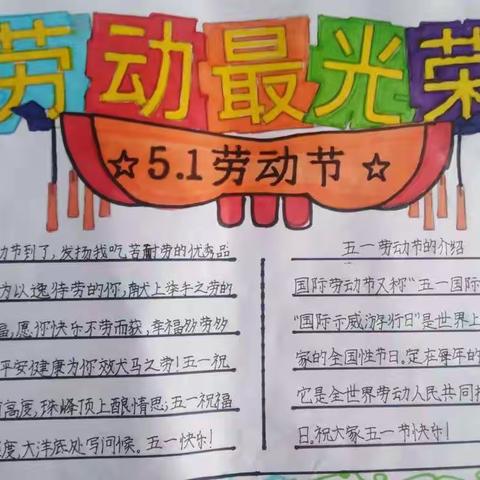 劳动最光荣
☆5.1劳动节☆
动节到了,发扬我吃苦耐劳的优秀品
为以逸待劳的你,献上举手之劳的
福,愿你快乐不劳而获,幸福多劳多
平安健康为你效犬马之劳!五一祝
有高度,珠峰顶上酿情思;五一祝福
深度,大洋底处写问候。五一快乐!
五一劳动节的介绍
国际劳动节又称“五一国际
“国际示威游行日”是世界上
家的全国性节日。定在每年的
它是全世界劳动人民共同拥
日。祝大家五一节快乐!